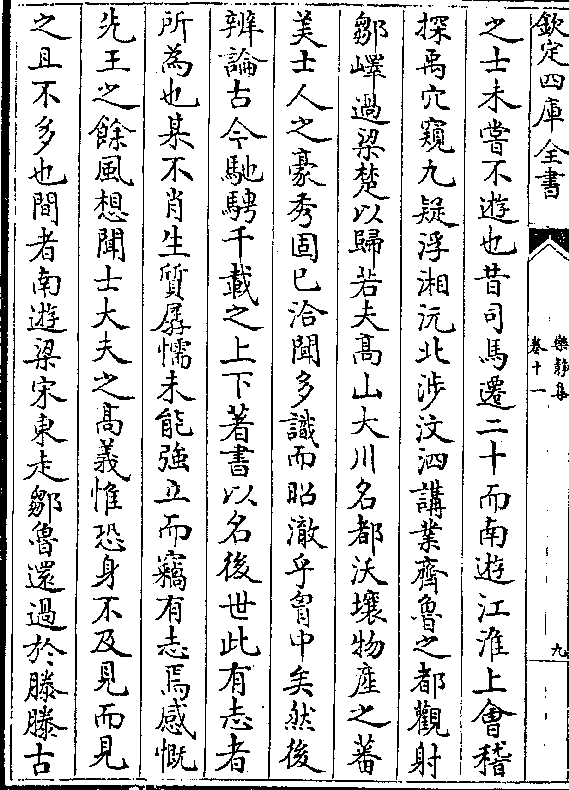 欽定四庫全書
樂靜集
卷十一
九
之士未嘗不遊也昔司馬遷二十而南遊江淮上會稽
探禹穴窺九疑浮湘沅北渉汶泗講業齊魯之都觀射
鄒嶧過梁楚以歸若夫髙山大川名都沃壤物産之蕃
美士人之豪秀固已洽聞多識而昭澈乎胷中矣然後
辨論古今馳騁千載之上下著書以名後世此有志者
所為也某不肖生質孱懦未能強立而竊有志焉感慨
先王之餘風想聞士大夫之髙義惟恐身不及見而見
之且不多也間者南遊梁宋東走鄒魯還過於滕滕古